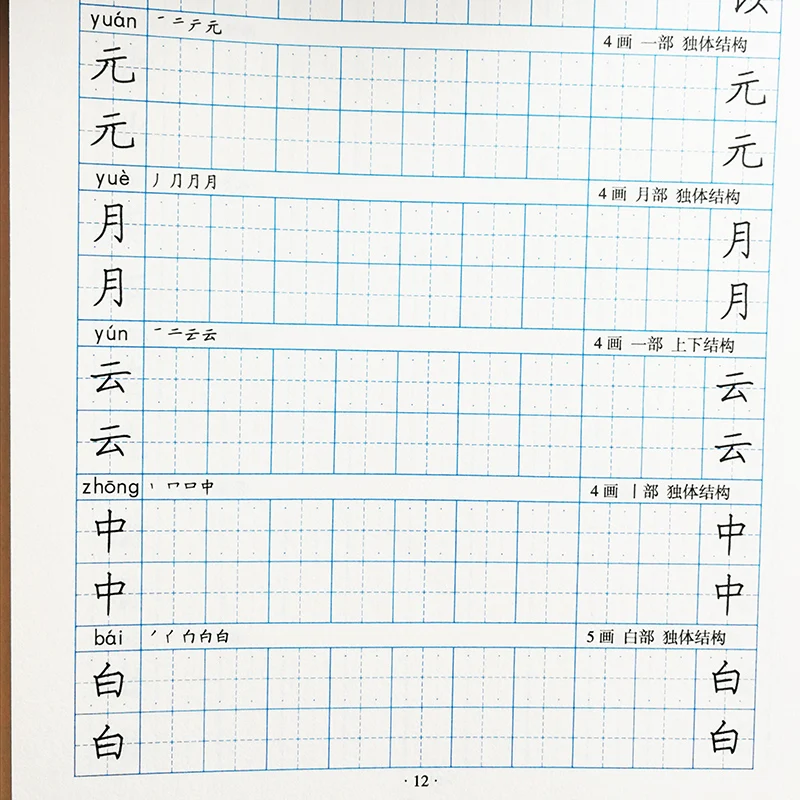 yuán 一 二 テ 元
4画 一部 独体结构
元 元
元 元
yuè 丿 ⺆ 月 月
4画 月部 独体结构
月 月
月 月
yún 一 二 云 云
4画 一部 上下结构
云 云
云 云
zhōng 丨 冖 口 中
4画 丨部 独体结构
中 中
中 中
bái 丿 亻 白 白
5画 白部 独体结构
白 白
白 白
·12·